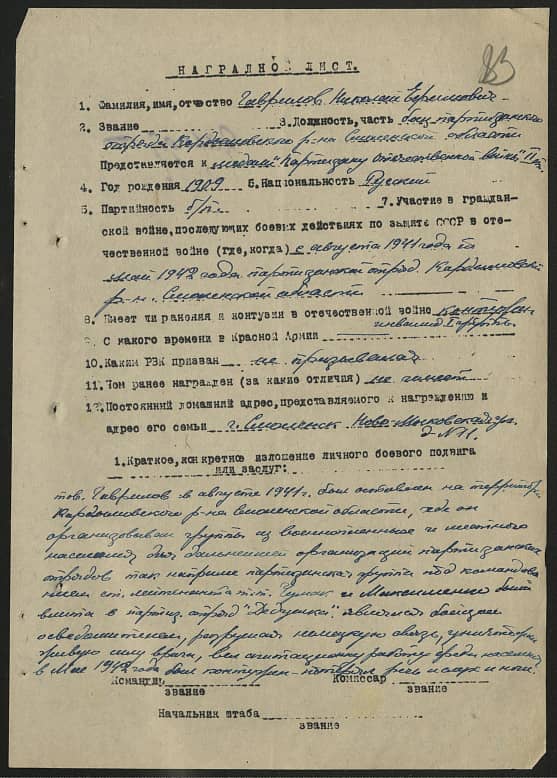 83
НАГРАДНОЙ ЛИСТ.
1. Фамилия,имя,отчество Гаврилов Николай Ефимович
2. Звание 3.Должность,часть боец партизанского
отряда Кардымовского р-на Смоленской области
Представляется к медали "Партизану отечественной войны" II ст.
4. Год рождения 1909 5.Национальность Русский
6. Партийность б/п. 7.Участие в граждан-
ской войне,последующих боевых действиях по защите СССР в оте-
чественной войне (где,когда) с августа 1941 года по
май 1942 года партизанский отряд Кардымовск.
р-н. Смоленской области
8. Имеет ли ранения и контузии в отечественной войне контужен
инвалид I группы.
9. С какого времени в Красной Армии
10.Каким РВК призван не призывался
11.Чем ранее награжден (за какие отличия) не имеет
12.Постоянный домашний адрес,представляемого к награждению и
адрес его семьи г. Смоленск Ново-Московская ул.
д. №11.
1.Краткое,конкретное изложение личного боевого подвига
или заслуг:
тов. Гаврилов в августе 1941г. был оставлен на территор.
Кардымовского р-на Смоленской области, где он
организовывал группы из военнопленных и местного
населения для дальнейшей организации партизанских
отрядов так например партизанская группа под командова
нием ст. лейтенанта т.т. и Максименко была
влита в партиз. отряд "Дедушка". являлся бойцом
осведомителем, разрушал немецкую связь, уничтожал
живую силу врага, вел агитационную работу среди населения
в Мае 1942 год был контужен - потерял речь и слух и ноги.
Командир Комиссар
звание звание
Начальник штаба
звание